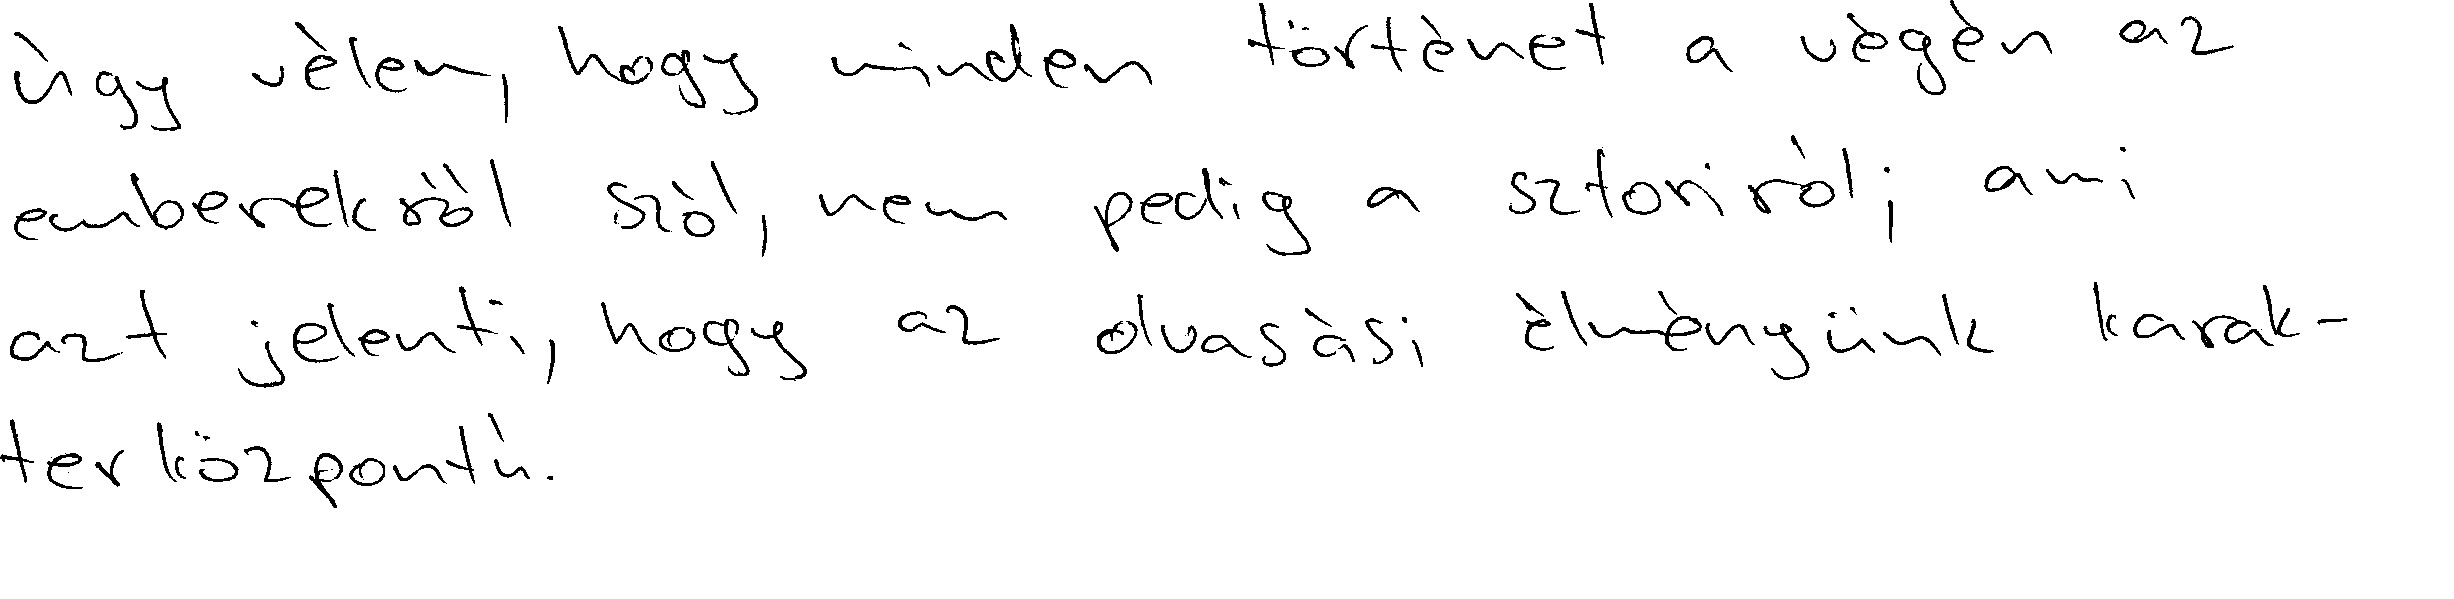 úgy vélem, hogy minden történet a végén az
emberekről szól, nem pedig a sztoriról; ami
azt jelenti, hogy az olvasási élményünk karak-
terközpontú.